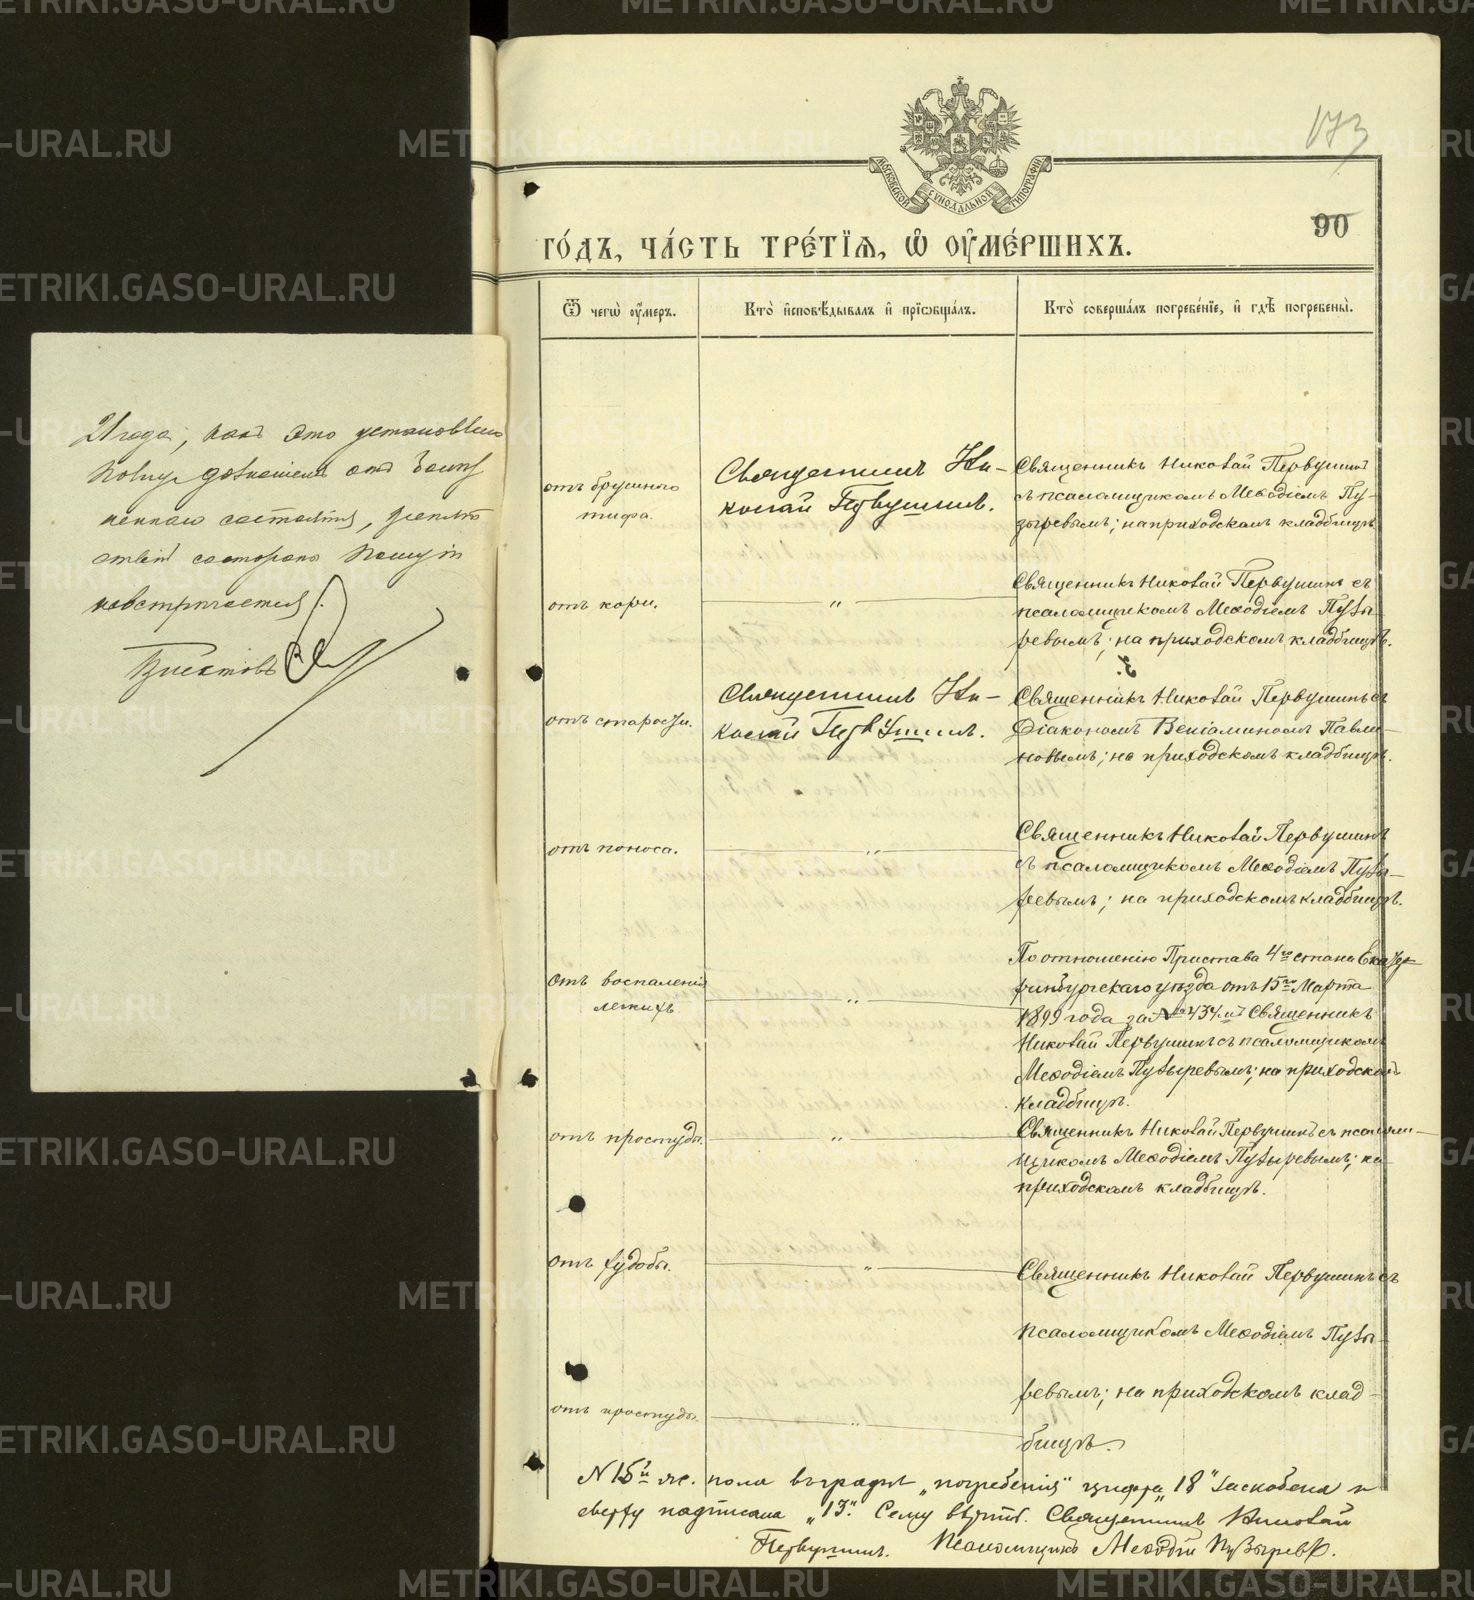 173
90
МОСКОВСКОЙ СѴНОДАЛЬНОЙ ТИПОГРАФІИ
ГО́ДЪ, ЧА́СТЬ ТРЕ́ТІЯ, Ѡ҆ ОУ҆МЕ́РШИХЪ.
Ѿ чегѡ̀ оу҆́меръ.
Кто̀ и҆сповѣ́дывалъ и҆ прїѡбща́лъ.
Кто̀ соверша́лъ погребе́нїе, и҆ гдѣ̀ погребены̀.
21 года, какъ это установлено
отъ брушного
тифа.
Священникъ Ни-
колай Первушинъ.
Священникъ Николай Первушинъ
съ псаломщикомъ Меѳодіемъ Пу-
зыревымъ; на приходскомъ кладбищѣ
отъ кори.
"
Священникъ Николай Первушинъ съ
псаломщикомъ Меѳодіемъ Пузы-
ревымъ; на приходскомъ кладбищѣ.
отъ старости.
Священникъ Ни-
колай Первушинъ.
Священникъ Николай Первушинъ съ
Діакономъ Веніаминомъ Павли-
новымъ; на приходскомъ кладбищѣ.
отъ поноса.
"
Священникъ Николай Первушинъ
съ псаломщикомъ Меѳодіемъ Пузы-
ревымъ; на приходскомъ кладбищѣ.
отъ воспаленія
легкихъ
"
По отношенію Пристава 4го стана Екате-
ринбургскаго уѣзда отъ 15го Марта
1899 года за № 434мъ Священникъ
Николай Первушинъ съ псаломщикомъ
Меѳодіемъ Пузыревымъ; на приходскомъ
кладбищѣ.
отъ простуды.
"
Священникъ Николай Первушинъ съ псалом-
щикомъ Меѳодіемъ Пузыревымъ; на
приходскомъ кладбищѣ.
отъ худобы.
"
Священникъ Николай Первушинъ съ
псаломщикомъ Меѳодіемъ Пузы-
ревымъ; на приходскомъ клад-
бищѣ.
отъ простуды.
"
N 15й пола въ графѣ „погребенія" цифра „18" заскоблена и
сверху надписана „13". Сему вѣрно. Священникъ Николай
Первушинъ. Псаломщикъ Меѳодій Пузыревъ.
METRIKI.GASO-URAL.RU